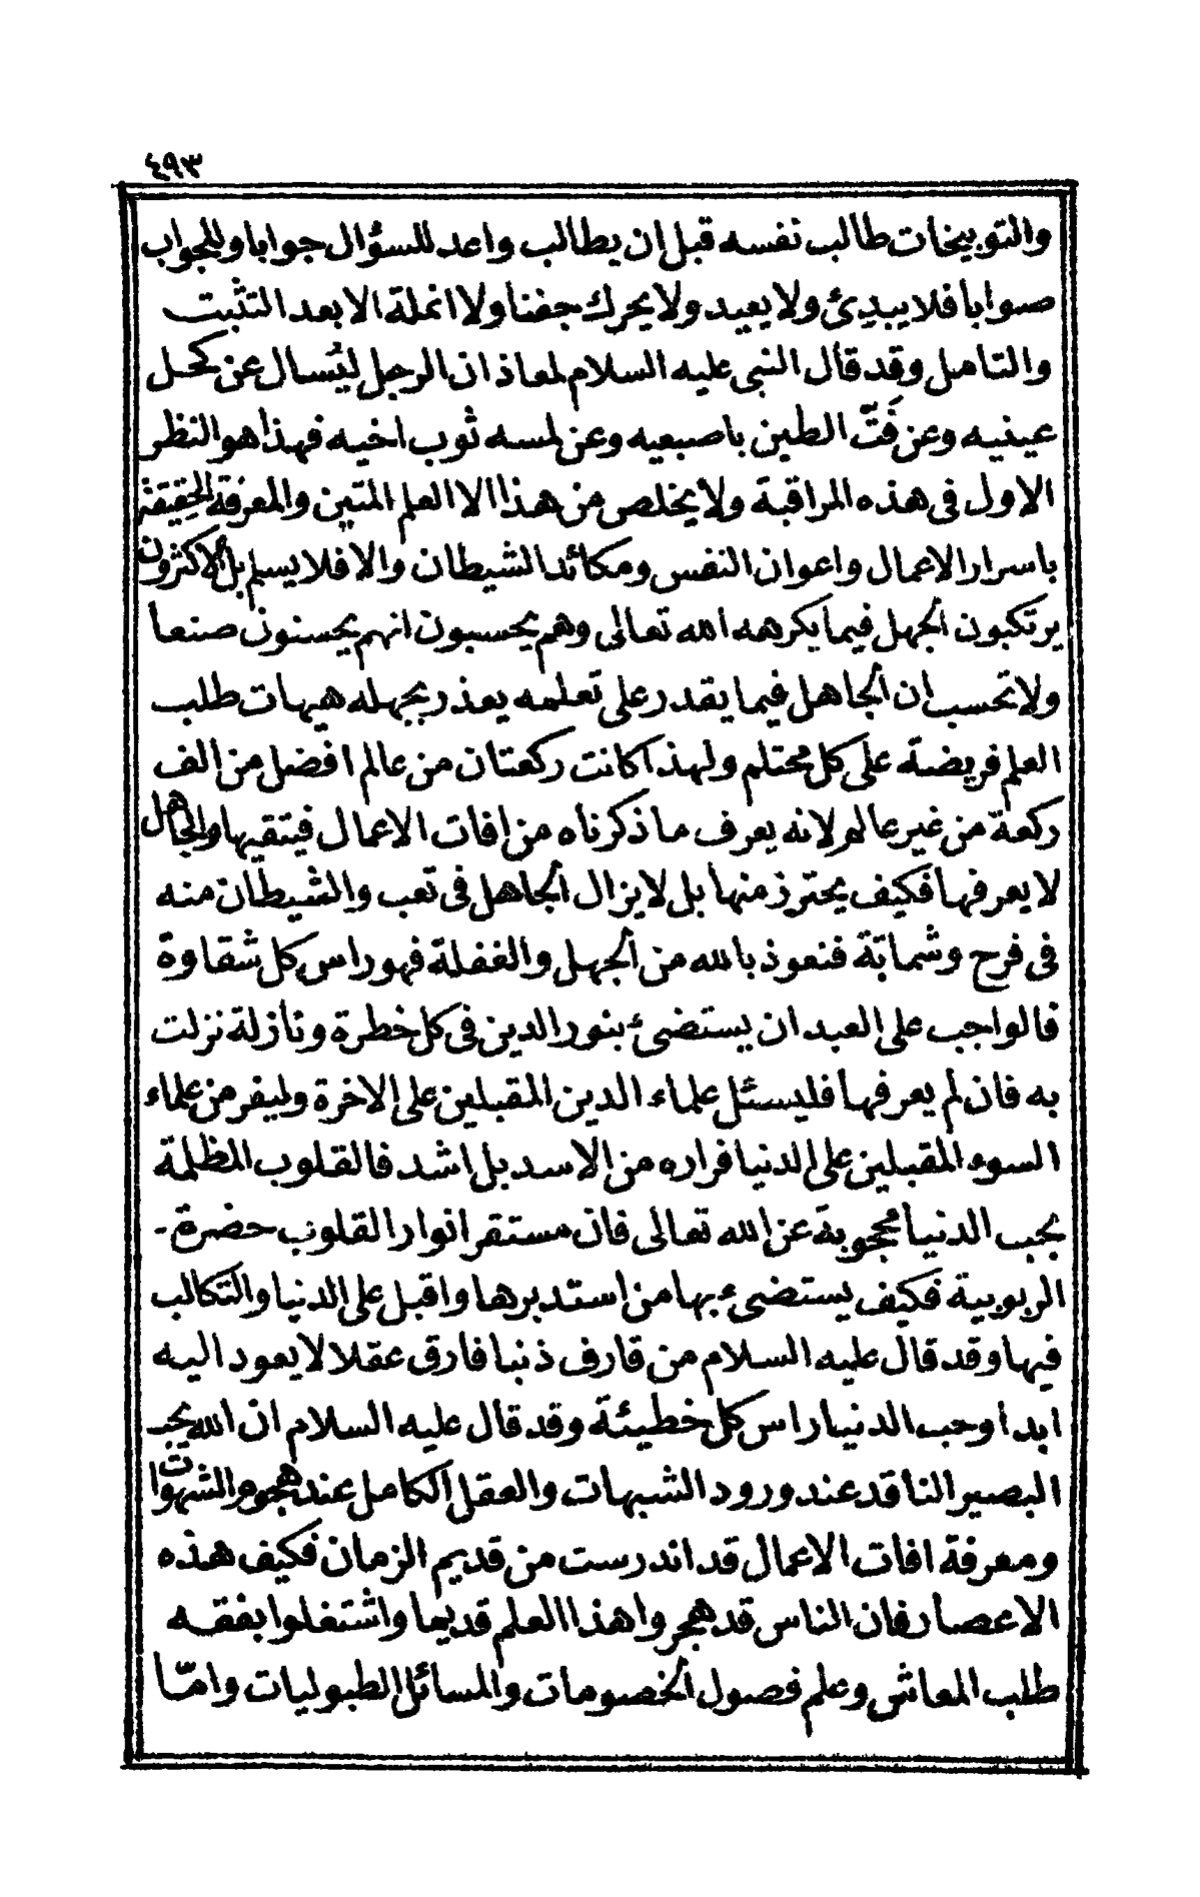 ٤٩٣
والتوبيخات طالب نفسه قبل ان يطالب واعد للسؤال جوابا وللجواب
صوابا فلا يبدئ ولا يعيد ولا يحرك جفنا ولا انملة الا بعد التثبت
والتامل وقد قال النبي عليه السلام لمعاذ ان الرجل ليُسال عن كحل
عينيه وعن فَتّ الطين باصبعيه وعن لمسه ثوب اخيه فهذا هو النظر
الاول فى هذه المراقبة ولا يخلص من هذا الا العلم المتين والمعرفة الحقيقة
باسرار الاعمال واعوان النفس ومكائد الشيطان والا فلا يسلم بل الاكثرون
يرتكبون الجهل فيما يكرهه الله تعالى وهم يحسبون انهم يحسنون صنعا
ولا تحسب ان الجاهل فيما يقدر على تعلمه يعذر بجهله هيهات طلب
العلم فريضة على كل محتلم ولهذا كانت ركعتان من عالم افضل من الف
ركعة من غير عالم ولانه يعرف ما ذكرناه من افات الاعمال فيتقيها والجاهل
لا يعرفها فكيف يحترز منها بل لا يزال الجاهل فى تعب والشيطان منه
فى فرح وشماتة فنعوذ بالله من الجهل والغفلة فهو راس كل شقاوة
فالواجب على العبد ان يستضئ بنور الدين فى كل خطرة ونازلة نزلت
به فان لم يعرفها فليسئل علماء الدين المقبلين على الاخرة وليفر من علماء
السوء المقبلين على الدنيا فراره من الاسد بل اشد فالقلوب المظلمة
بحب الدنيا محجوبة عن الله تعالى فان مستقر انوار القلوب حضرة -
الربوبية فكيف يستضىء بها من استدبرها واقبل على الدنيا والتكالب
فيها وقد قال عليه السلام من قارف ذنبا فارق عقلا لا يعود اليه
ابدا وحب الدنيا راس كل خطيئة وقد قال عليه السلام ان الله يحب
البصير الناقد عند ورود الشبهات والعقل الكامل عند هجوم الشهوات
ومعرفة افات الاعمال قد اندرست من قديم الزمان فكيف هذه
الاعصار فان الناس قد هجروا هذا العلم قديما واشتغلوا بفقه
طلب المعاش وعلم فصول الخصومات والمسائل الطبوليات وامّا